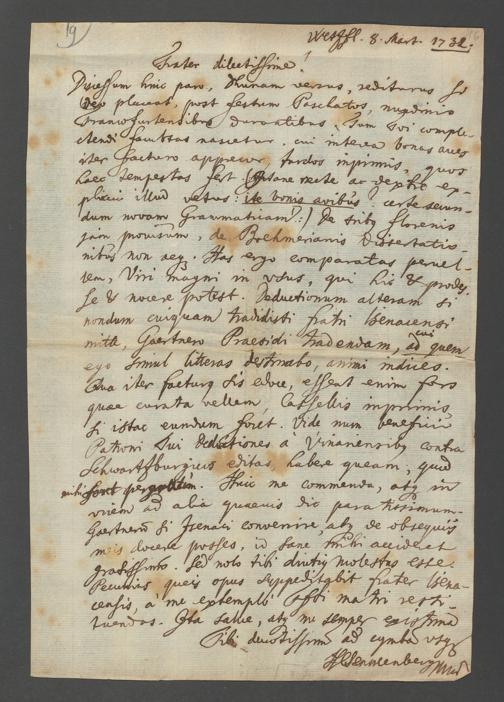 19
Wetzfl. 8. Mart. 1732.
Frater dilectissime!
Discessum hinc paro, Rhenum versus, rediturus so
Deo placeat, post festum Paschatos, nundinis
Francofurtensibus durantibus. Tum Tui comple-
ctendi facultas nascetur, cui interea bonas aves
iter facturo apprecor, surdos inprimis, quos
haec tempestas fert (Sane recte ac dextre ex-
plicui illud vetus: ite bonis avibus? certe secun-
dum novam Grammaticam:) De tribus florenis
jam provisum, de Boehmerianis Dissertatio-
nibus non aeq. Has ergo comparatas pervel-
lem, Viri magni in usus, qui his & prodes-
se & nocere potest. Deductionum alteram si
nondum cuiquam tradidisti fratri Isenacensi
mitte, Gaertnero Praesidi tradendam, ad quem
cui
ego simul litteras destinabo, animi indices.
Qua iter factur sis edoce, essent enim fors
quae curata vellem, Cassellis inprimis,
si istac eundum foret. Vide num beneficio
Patroni Tui Deductiones a Vinariensib contra
Schwartzburgicos editas, habere queam, quod
mihi foret. Huic me commenda, atq in
viam ad alia quaevis dic paratissimum.
Gaertnero si Isenaci convenire, atq de obsequiis
meis docere posses, id sane mihi accideret
gratissimo. Sed nolo tibi diutiq molestus esse.
Pecunias queis opus suppeditabit frater Isena-
censis, a me extemplo Offbi matri resti-
tuendas. Ita salve, atq me semper existima
Tibi devotissim ad cymbam usq
HCSenckenberg